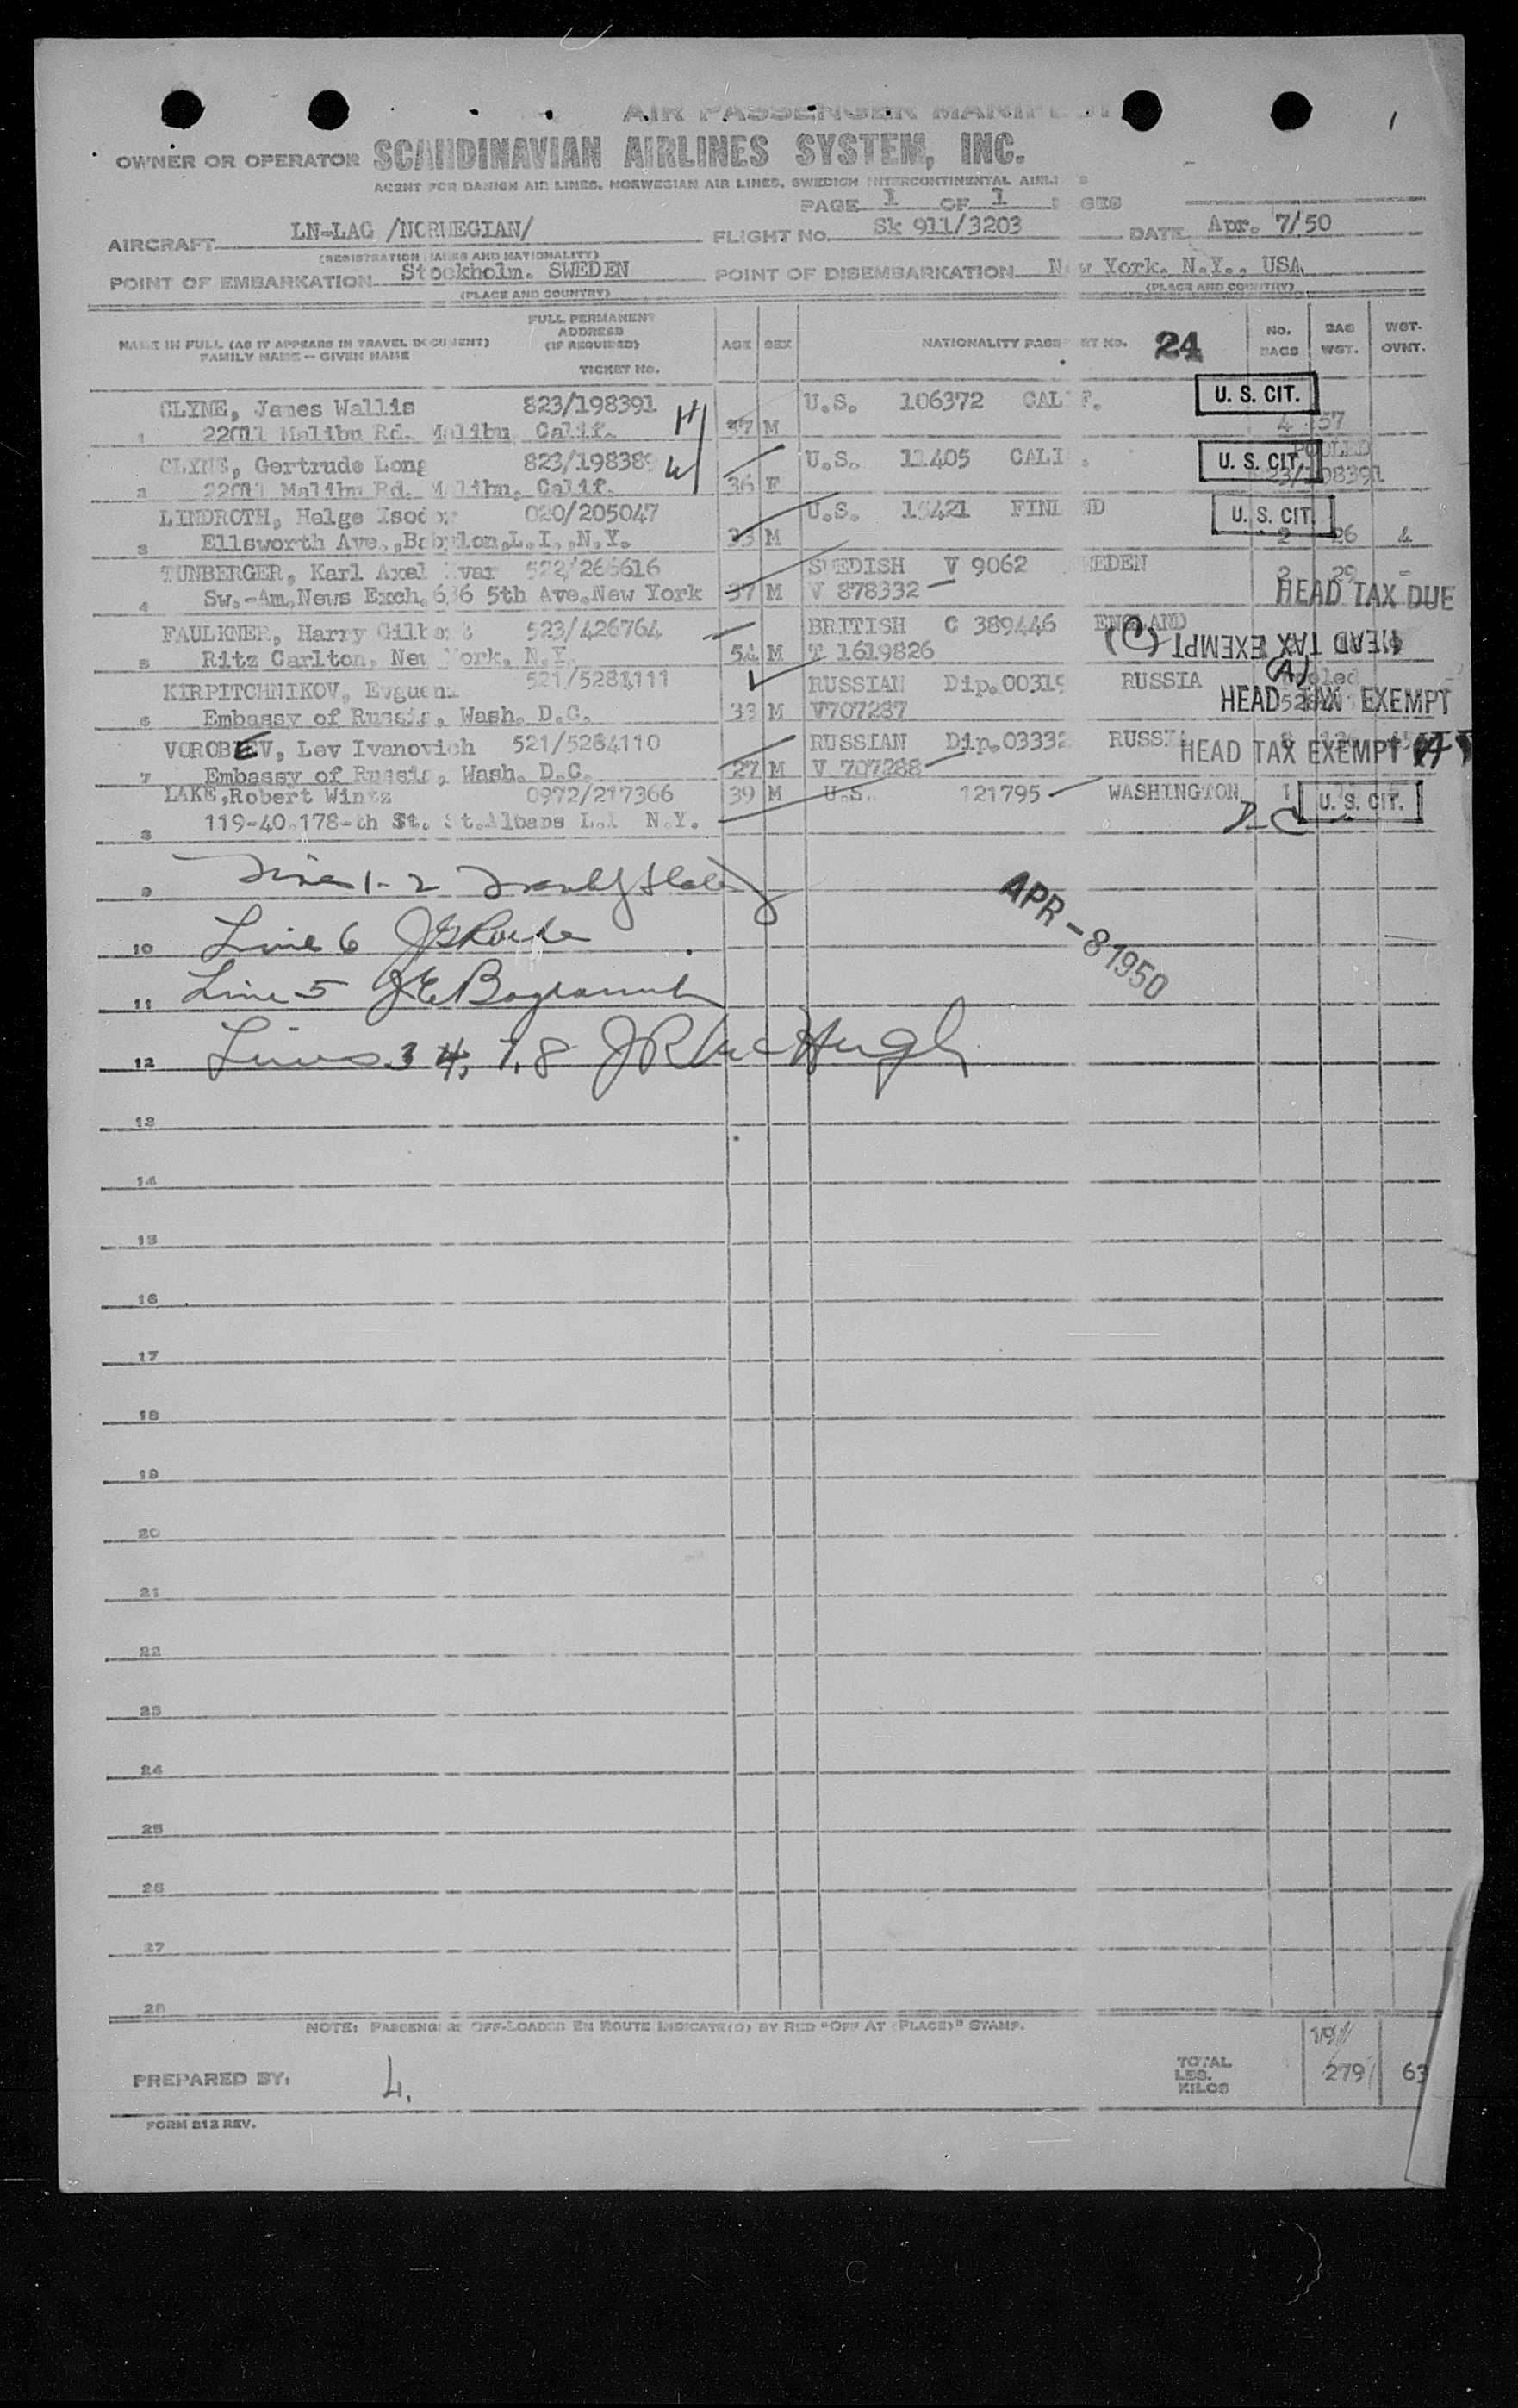 AIR PASSENGER MANIFEST
OWNER OR OPERATOR SCANDINAVIAN AIRLINES SYSTEM, INC.
AGENT FOR DANISH AIR LINES, NORWEGIAN AIR LINES, SWEDISH INTERCONTINENTAL AIRLINES
PAGE 1 OF 1 PAGES
AIRCRAFT LN-LAG /NORWEGIAN/ FLIGHT NO. Sk 911/3203 DATE Apr. 7/50
(REGISTRATION MARKS AND NATIONALITY)
POINT OF EMBARKATION Stockholm. SWEDEN POINT OF DISEMBARKATION New York. N.Y., USA
(PLACE AND COUNTRY) (PLACE AND COUNTRY)
NAME IN FULL (AS IT APPEARS IN TRAVEL DOCUMENT)
FAMILY NAME — GIVEN NAME
FULL PERMANENT
ADDRESS
(IF REQUIRED)
TICKET NO.
AGE SEX NATIONALITY PASSPORT NO. 24 NO. BAGS BAG WGT. WGT. OVNT.
CLYNE, James Wallis 823/198391 H U.S. 106372 CALIF. U. S. CIT.
1 22011 Malibu Rd. Malibu, Calif. 37 M 4 57
CLYNE, Gertrude Long 823/198389 W U.S. 11405 CALIF. U. S. CIT. POOLED
2 22011 Malibu Rd. Malibu, Calif. 36 F 823/198391
LINDROTH, Helge Isodor 020/205047 U.S. 15421 FINLAND U. S. CIT.
3 Ellsworth Ave.,Babylon,L.I.,N.Y. 33 M 2 26 4
TUNBERGER, Karl Axel Ivar 522/266616 SWEDISH V 9062 SWEDEN 2 29 -
4 Sw.-Am.News Exch.636 5th Ave.New York 37 M V 878332 HEAD TAX DUE
FAULKNER, Harry Gilbert 523/426764 BRITISH C 389446 ENGLAND
5 Ritz Carlton, New York, N.Y. 54 M T 1619826 (C) HEAD TAX EXEMPT
KIRPITCHNIKOV, Evgueni 521/5284111 RUSSIAN Dip.00319 RUSSIA (A) Pooled
6 Embassy of Russia, Wash. D.C. 33 M V707287 HEAD TAX EXEMPT
VOROBEV, Lev Ivanovich 521/5284110 RUSSIAN Dip.03332 RUSSIA HEAD TAX EXEMPT
7 Embassy of Russia, Wash. D.C. 27 M V 707288
LAKE,Robert Wintz 0972/217366 39 M U.S. 121795 WASHINGTON, U. S. CIT.
8 119-40.178-th St. St.Albans L.I N.Y. D.C
9 Lines 1-2
10 Line 6
11 Line 5
12 Lines 3 4, 7, 8 J R McHugh
APR -8 1950
13
14
15
16
17
18
19
20
21
22
23
24
25
26
27
28
NOTE: PASSENGERS OFF-LOADED EN ROUTE INDICATE(D) BY RED "OFF AT (PLACE)" STAMP.
PREPARED BY: L.
TOTAL
LBS.
KILOS
279 63
FORM 212 REV.